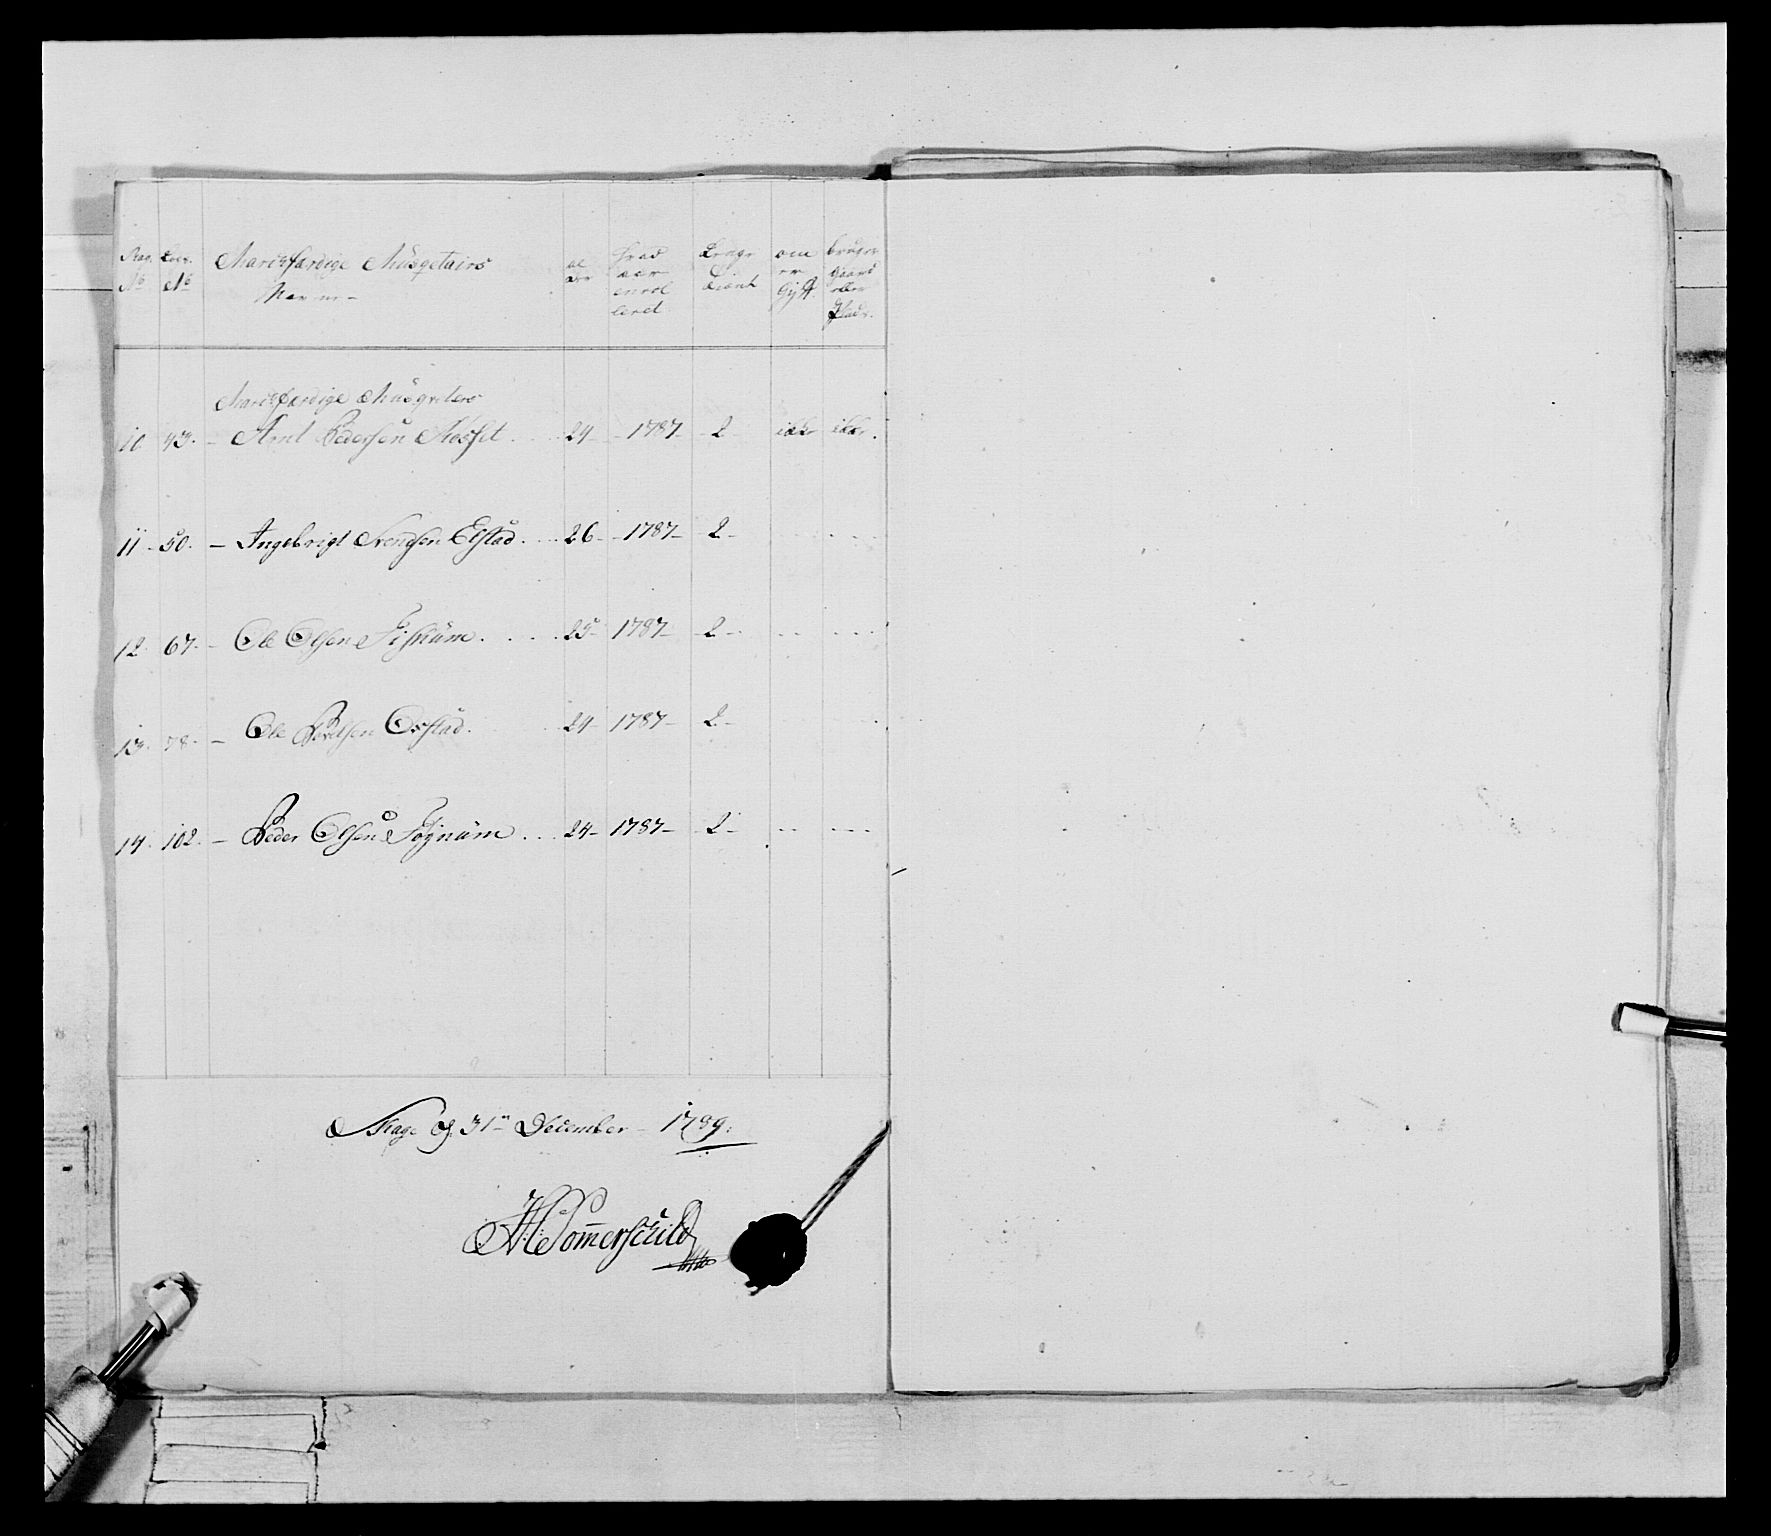 No No Marchfærdige Musqetairs Navne - al der hvad aar enrol leret Længe tient om er Gift bruger gaard eller Plads.
Marchfærdige Musqeters
10 43. - Arnt Pedersen Mosset . . . 24 - 1787 - 2 - ikke ikke.
11 - 50. - Ingebrigt Svendsen Elstad . . . 26 - 1787 - 2 -
12. 67. - Ole Olsen Fiskum . . . . 25 - 1787 - 2 -
13. 78. - Ole Olstad. 24 - 1787 - 2 -
14. 102. - Peder Olsen Fognum . . . 24 - 1787 - 2 -
Skage d. 31te December 1789.
H Somerschild